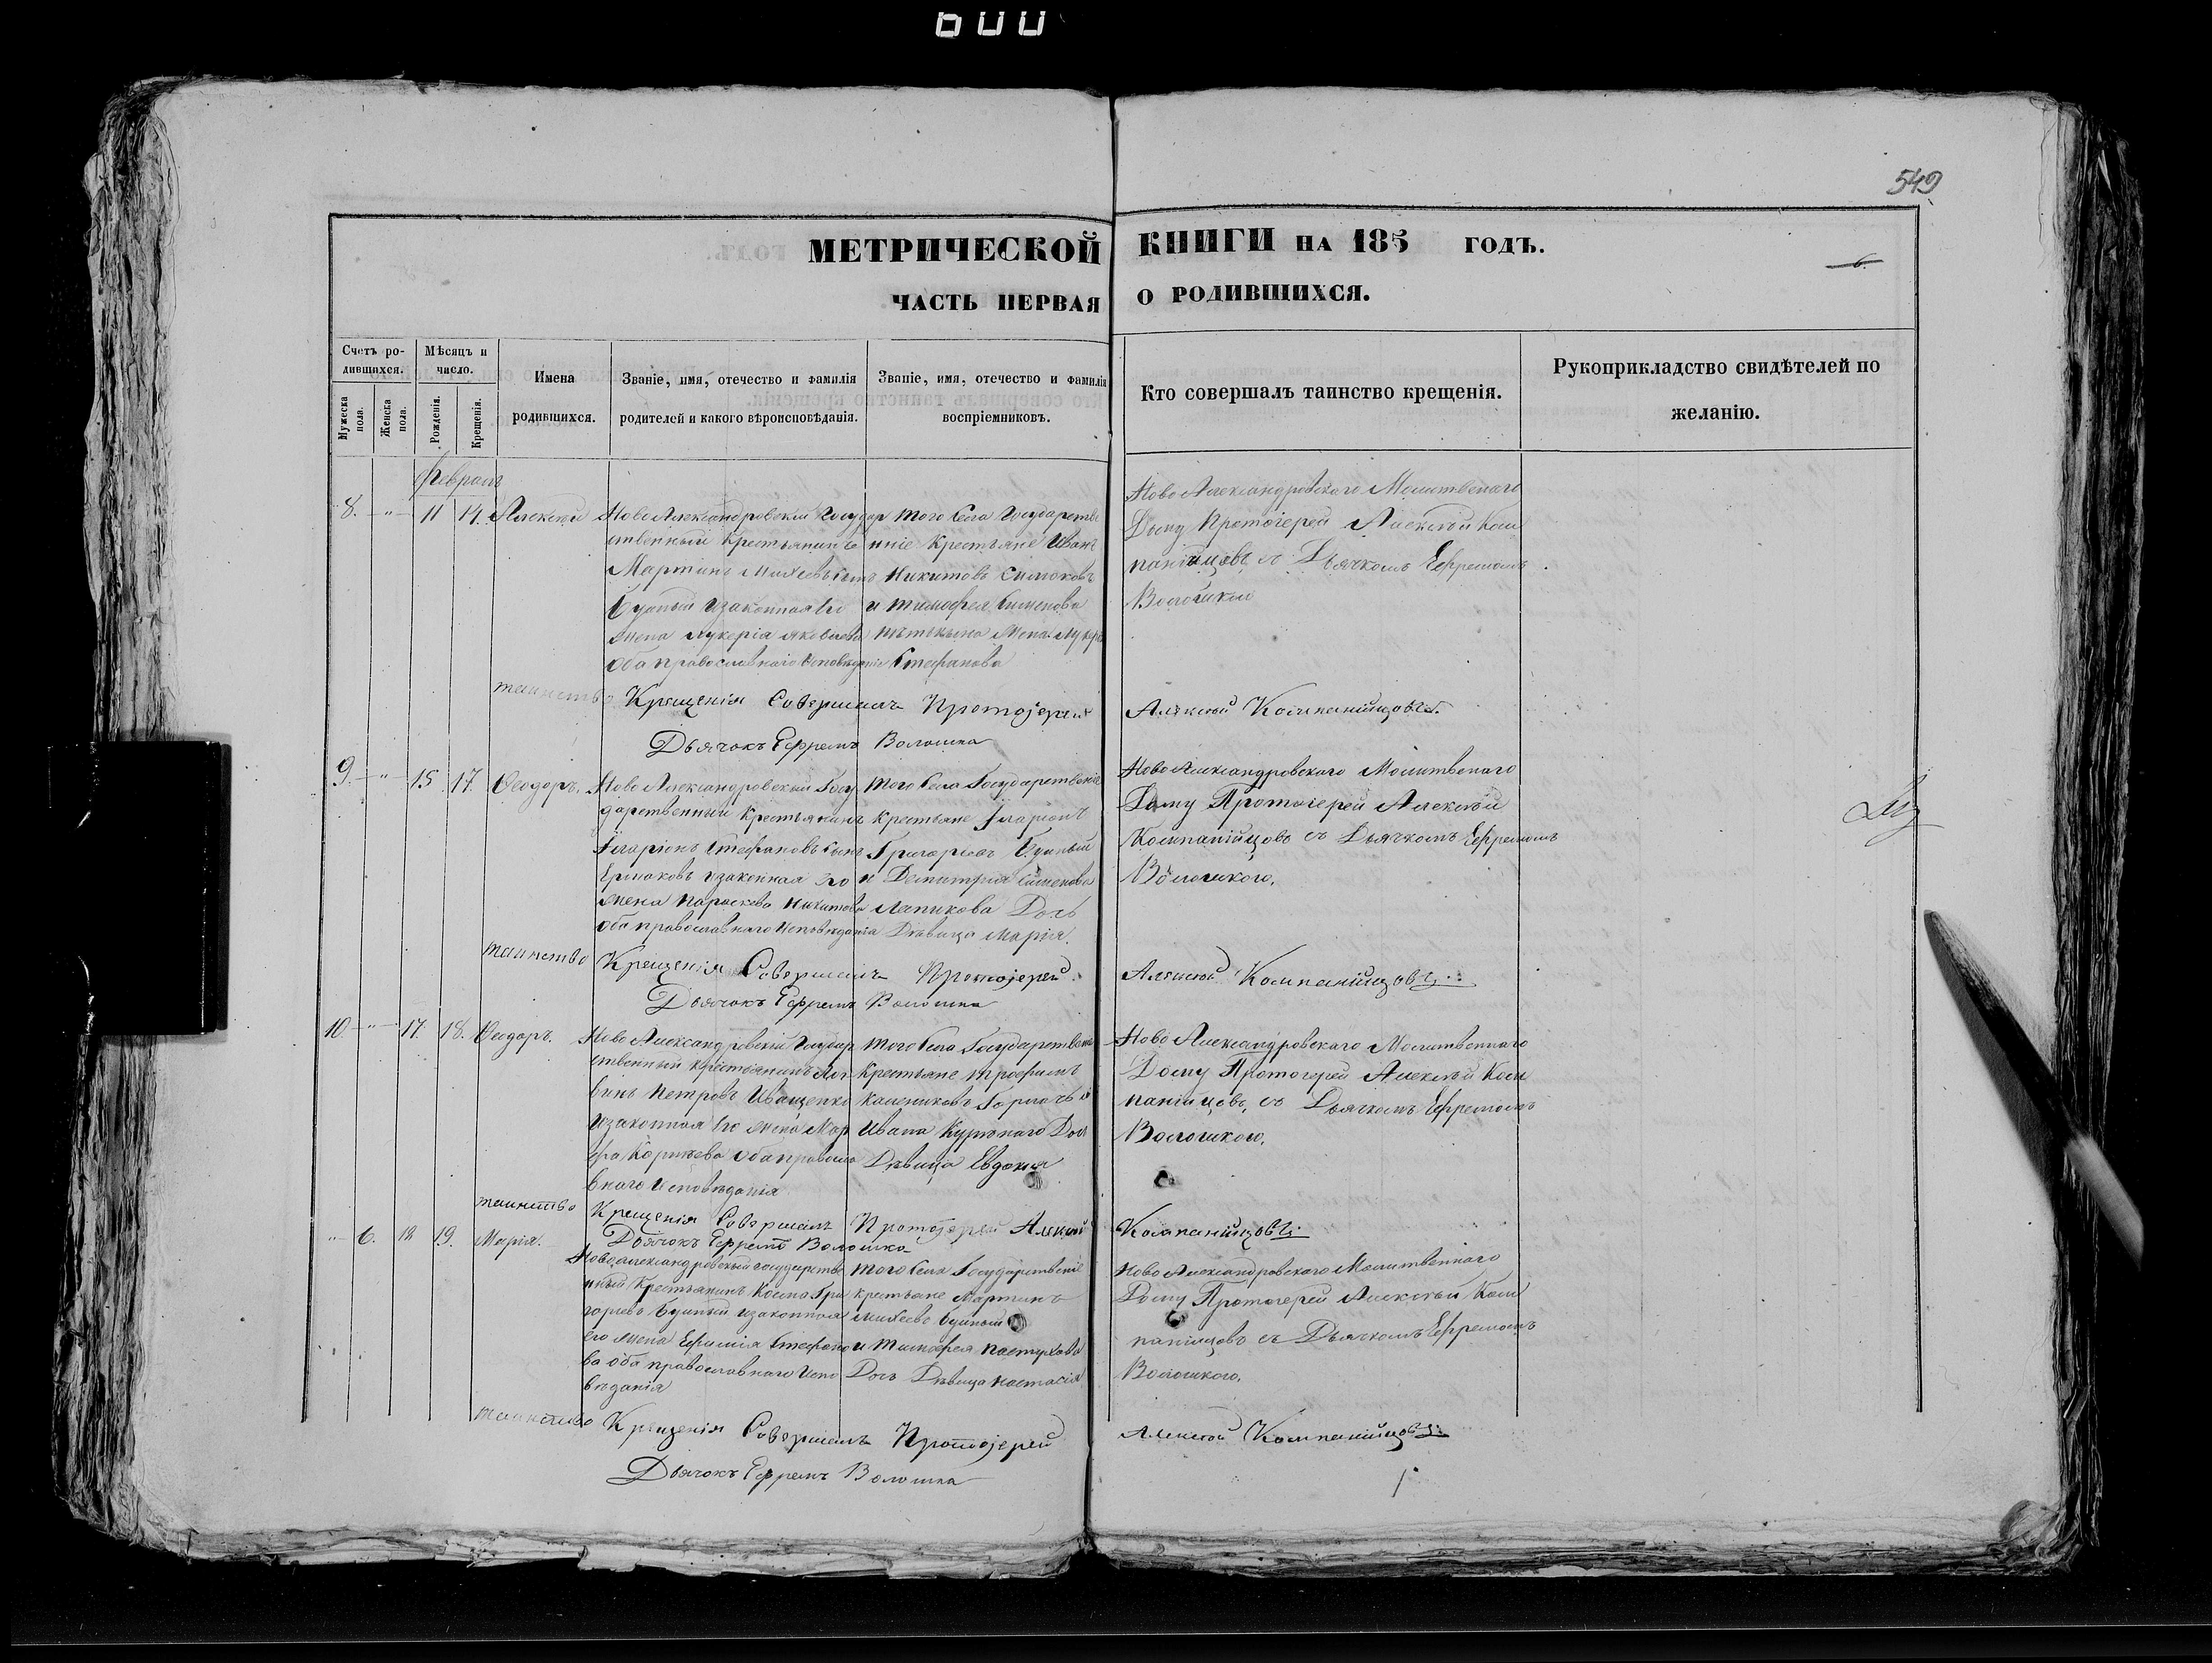 600
549
МЕТРИЧЕСКОЙ КНИГИ НА 185 ГОДЪ.
6.
ЧАСТЬ ПЕРВАЯ О РОДИВШИХСЯ.
Счетъ родившихся.
Мужеска пола.
Женска пола.
Мѣсяцъ и число.
Рожденія.
Крещенія.
Имена родившихся.
Званіе, имя, отечество и фамилія родителей и какого вѣроисповѣданія.
Званіе, имя, отечество и фамилія воспріемниковъ.
Кто совершалъ таинство крещенія.
Рукоприкладство свидѣтелей по желанію.
Февраль
8. " 11 14. Алексѣй
Ново Александровскій Государ
ственный Крестьянинъ
Мартинъ Михеевъ сынъ
Буцный изаконная Его
Жена Лукерія Яковлева
оба православнаго Исповѣданія
Того Села Государстве
нніе Крестьяне Иванъ
Никитовъ
и Тимофея Симонова
Жена
Стефанова
Ново Александровскаго Молитвенаго
Дому Протоіерей Алексѣй Ком
панійцовъ съ Дьячкомъ Ефремомъ
Волошкой
таинство Крещенія Совершилъ Протоіерей Алексѣй Компанійцовъ.
Дьячокъ Ефремъ Волошка
9. " 15 17. Ѳеодоръ.
Ново Александровскій Госу
дарственный Крестьянинъ
Іларіонъ Стефановъ сынъ
Ермаковъ изаконная его
Жена Параскева Никитова
оба православнаго Исповѣданія
Того Села Государственіе
Крестьяне Іларіонъ
Григорьевъ Буцный
и Демитрія Симонова
Ляпикова Дочь
Дѣвица Марія.
Ново Александровскаго Молитвенаго
Дому Протоіерей Алексѣй
Компанійцовъ съ Дьячкомъ Ефремомъ
Волошкою.
таинство Крещенія Совершилъ Протоіерей Алексѣй Компанійцовъ.
Дьячокъ Ефремъ Волошка
10 " 17. 18. Ѳеодоръ.
Ново Александровскій Государ
ственный Крестьянинъ Лог
винъ Петровъ Иващенко
изаконная Его Жена Мар
фа Корнеева оба правосла
внаго Исповѣданія
Того Села Государствен
Крестьяне Трофимъ
Калениковъ
Ивана Дочь
Дѣвица Евдокія
Ново Александровскаго Молитвеннаго
Дому Протоіерей Алексѣй Ком
панійцовъ, съ Дьячкомъ Ефремомъ
Волошкою.
таинство Крещенія Совершилъ Протоіерей Алексѣй Компанійцовъ.
Дьячокъ Ефремъ Волошка
" 6. 18 19. Марія.
Ново Александровскій Государстве
нный Крестьянинъ Косма Гри
горьевъ Буцный изаконная
его Жена Ефимія Стефано
ва оба православнаго Испо
вѣданія
Того Села Государственіе
крестьяне Мартинъ
Михеевъ Буцный
и Тимофея Пастухова
Дочь Дѣвица Настасія
Ново Александровскаго Молитвеннаго
Дому Протоіерей Алексѣй Ком
панійцовъ съ Дьячкомъ Ефремомъ
Волошкою.
таинство Крещенія Совершилъ Протоіерей Алексѣй Компанійцовъ.
Дьячокъ Ефремъ Волошка